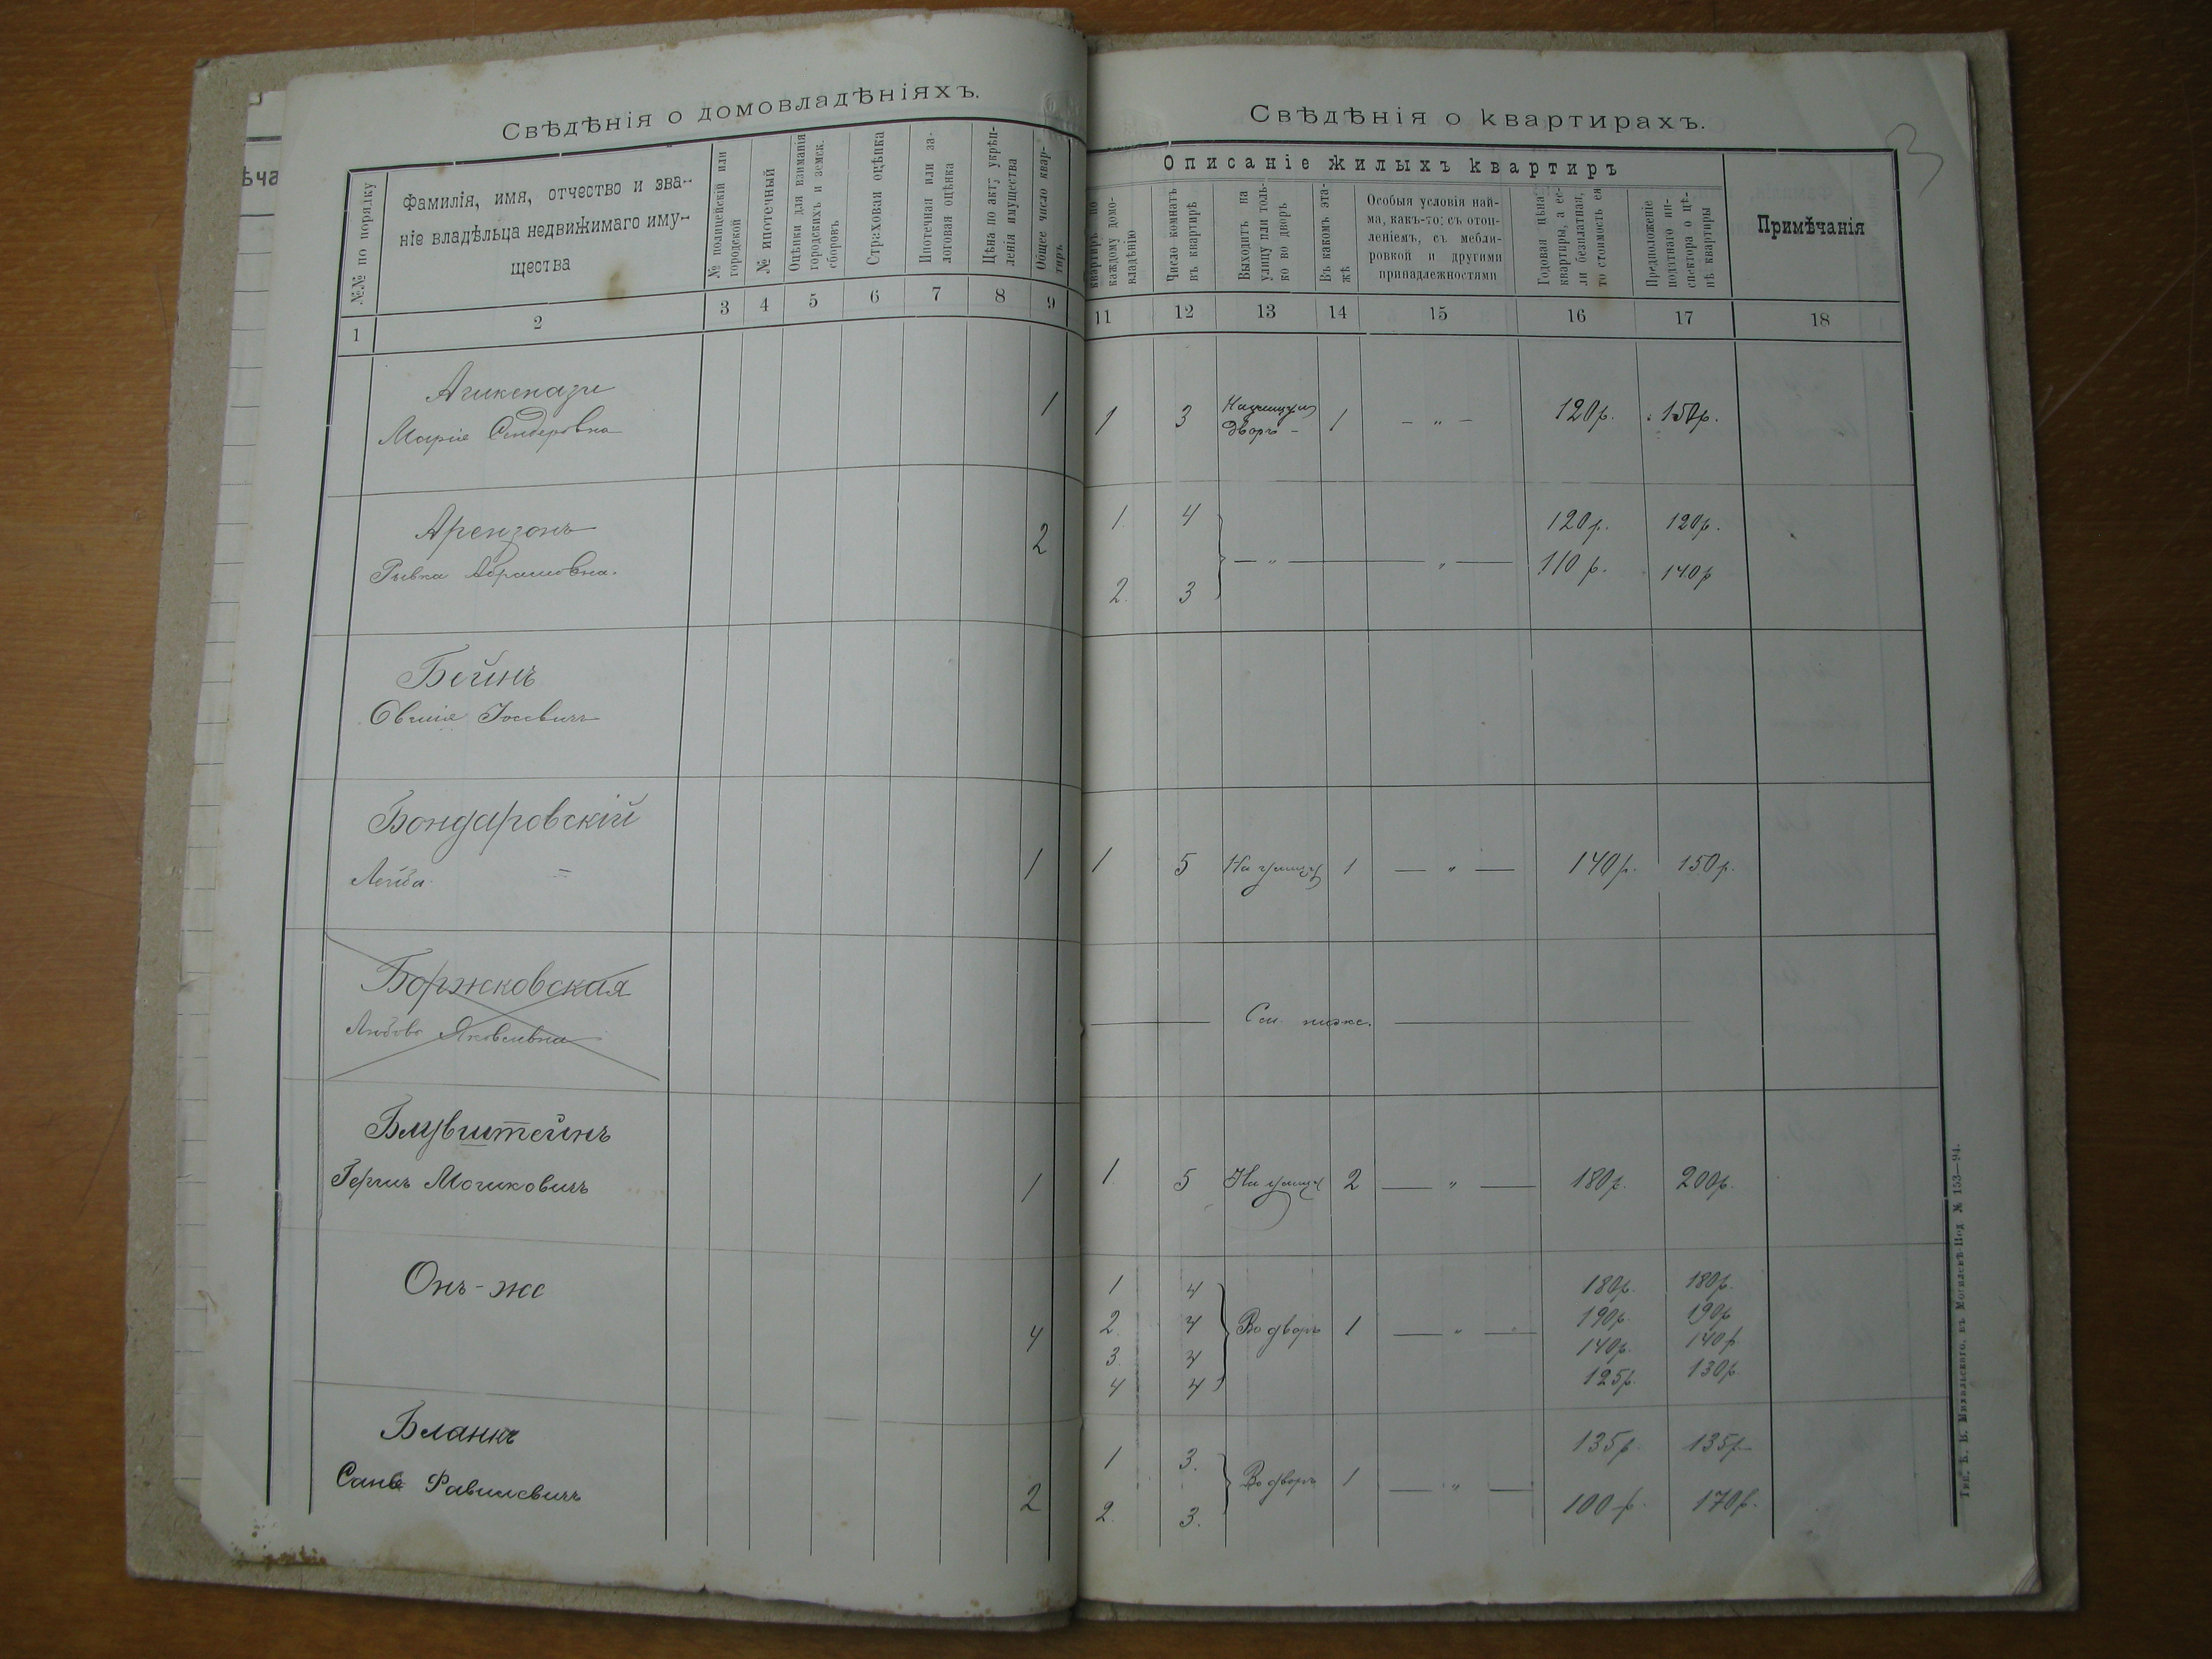 Свѣдѣнія о домовладѣніяхъ.
№№ по порядку
Фамилія, имя, отчество и зва-
ніе владѣльца недвижимаго иму-
щества
№ полицейскій или
городской
№ ипотечный
Оцѣнки для взиманія
городскихъ и земск.
сборовъ
Страховая оцѣнка
Ипотечная или за-
логовая оцѣнка
Цѣна по акту укрѣп-
ленія имущества
Общее число квар-
тиръ
1 2 3 4 5 6 7 8 9
Ашкенази
Марія Сендеровна
1
Арензонъ
Рывка Абрамовна.
2
Бейнъ
Овшія Іосевичъ
Бондаровскій
Лейба
1
Боржковская
Любовь Яковлевна
Блувштейнъ
Герцъ Мошковичъ
1
Онъ-же
4
Бланкъ
Файвишевичъ
2
Свѣдѣнія о квартирахъ.
3
Описаніе жилыхъ квартиръ
Примѣчанія
квартиръ по
каждому домо-
владѣнію
Число комнатъ
въ квартирѣ
Выходитъ на
улицу или толь-
ко во дворъ
Въ какомъ эта-
жѣ
Особыя условія най-
ма, какъ-то: съ отоп-
леніемъ, съ мебли-
ровкой и другими
принадлежностями
Годовая цѣна
квартиры, а ес-
ли безплатная,
то стоимость ея
Предположеніе
податнаго ин-
спектора о цѣ-
нѣ квартиры
11 12 13 14 15 16 17 18
1 3 На улицу и дворъ - 1 - „ - 120р. 150р.
1. 4 120р. 120р.
— „ — — „ —
2. 3 110р. 140р
1 5 На улицу 1 — „ — 140р. 150р.
См. ниже.
1. 5 На улицу 2 — „ — 180р. 200р.
1 4 180р. 180р.
2. 4 Во дворъ 1 — „ — 190р. 190р
3. 4 140р. 140р
4 4 125р. 130р.
1 3. 135р 135р
Во дворъ 1 — „ —
2. 3. 100р. 170р.
Тип. въ Могилевѣ-Под № 153—94.